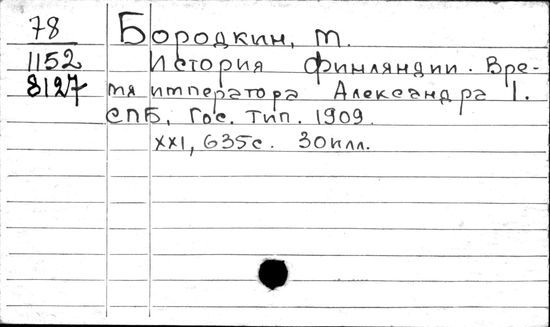 78 Бородкин, М.
1152 История Финляндии. Вре-
8127 мя императора Александра I.
СПБ, Гос. тип. 1909.
XXI, 635 с. 30 илл.